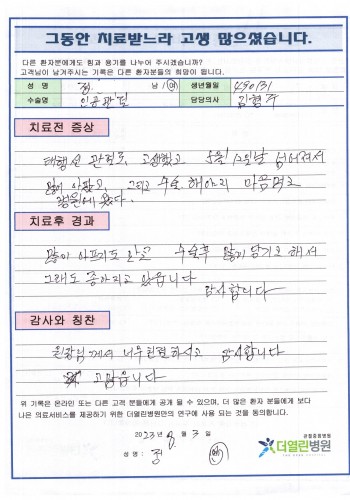 그동안 치료받느라 고생 많으셨습니다.
다른 환자분에게도 힘과 용기를 나누어 주시겠습니까?
고객님이 남겨주시는 기록은 다른 환자분들의 희망이 됩니다.
성 명 정 남 / 여 생년월일 490131
수술명 인공관절 담당의사 김형주
치료전 증상
퇴행성 관절로 고생했고 5월 12일날 넘어져서
많이 아팠고, 그리고 수술 해야지 마음먹고
병원에 왔다.
치료후 경과
많이 아프기도 한고 수술후 많이 당기고 해서
그래도 좋아지고 있습니다
감사합니다
감사와 칭찬
원장님께서 너무 친절하시고 감사합니다
고맙습니다
위 기록은 온라인 또는 다른 고객 분들에게 공개 될 수 있으며, 더 많은 환자 분들에게 보다
나은 의료서비스를 제공하기 위한 더열린병원만의 연구에 사용 되는 것을 동의합니다.
2023년 8월 3일
성 명 : 정
관절척추병원
더열린병원